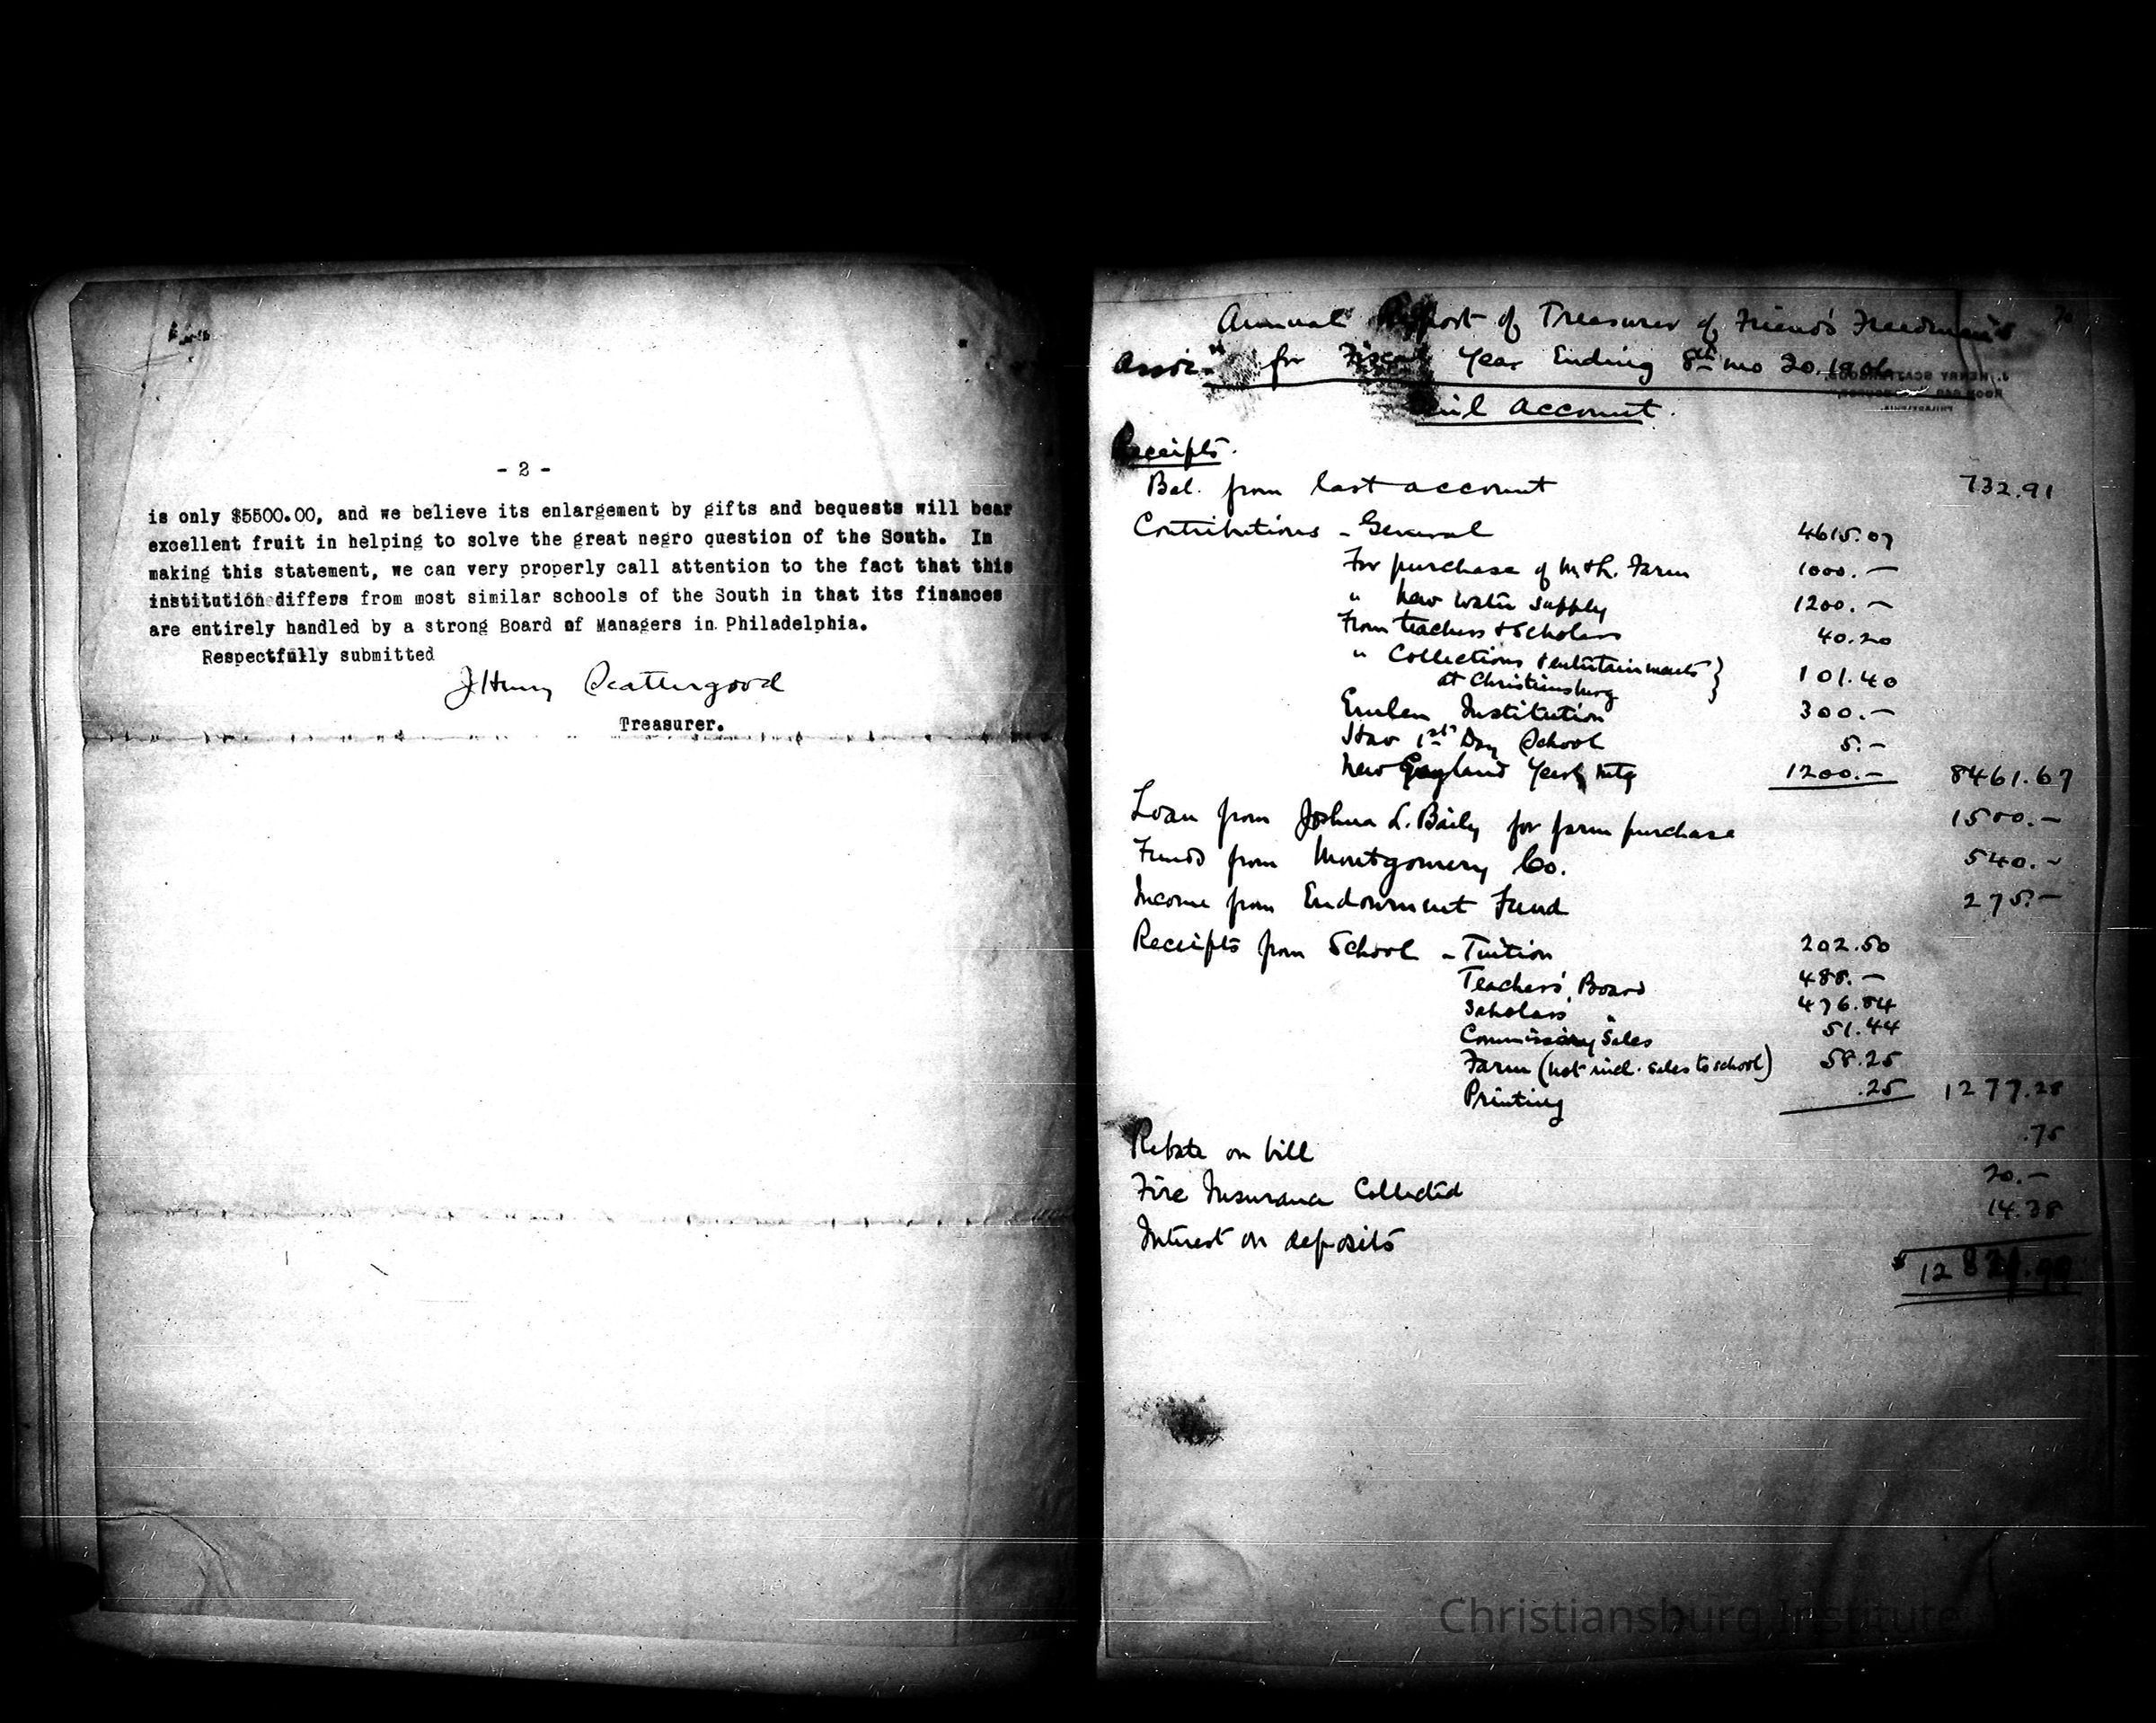 - 2 -
is only $5500.00, and we believe its enlargement by gifts and bequests will bear
excellent fruit in helping to solve the great negro question of the South. In
making this statement, we can very properly call attention to the fact that this
institution differs from most similar schools of the South in that its finances
are entirely handled by a strong Board of Managers in Philadelphia.
Respectfully submitted
J Henry Scattergood
Treasurer.
Annual Report of Treasurer of Friends' Freedmen's
Assoc.n for Fiscal Year Ending 8th mo 20. 1906
J. HENRY SCATTERGOOD,
PHILADELPHIA
Account.
Receipts.
Bal. from last account 732.91
Contributions - General 4615.07
For purchase of Farm 1000.—
" New Water Supply 1200.—
From teachers & Scholars 40.20
" Collections & entertainments } 101.40
at Christiansburg
Emlen Institution 300.—
Hav 1st Day School 5.—
New England Yearly Mtg 1200.— 8461.67
Loan from Joshua L. Baily for farm purchase 1500.—
Funds from Montgomery Co. 540.—
Income from Endowment Fund 275.—
Receipts from School - Tuition 202.50
Teachers' Board 488.—
Scholars' " 476.84
Commissary Sales 51.44
Farm (not incl. sales to school) 58.25
Printing .25 1277.28
Rebate on bill .75
Fire Insurance Collected 20.—
Interest on deposits 14.38
Christiansburg Institute